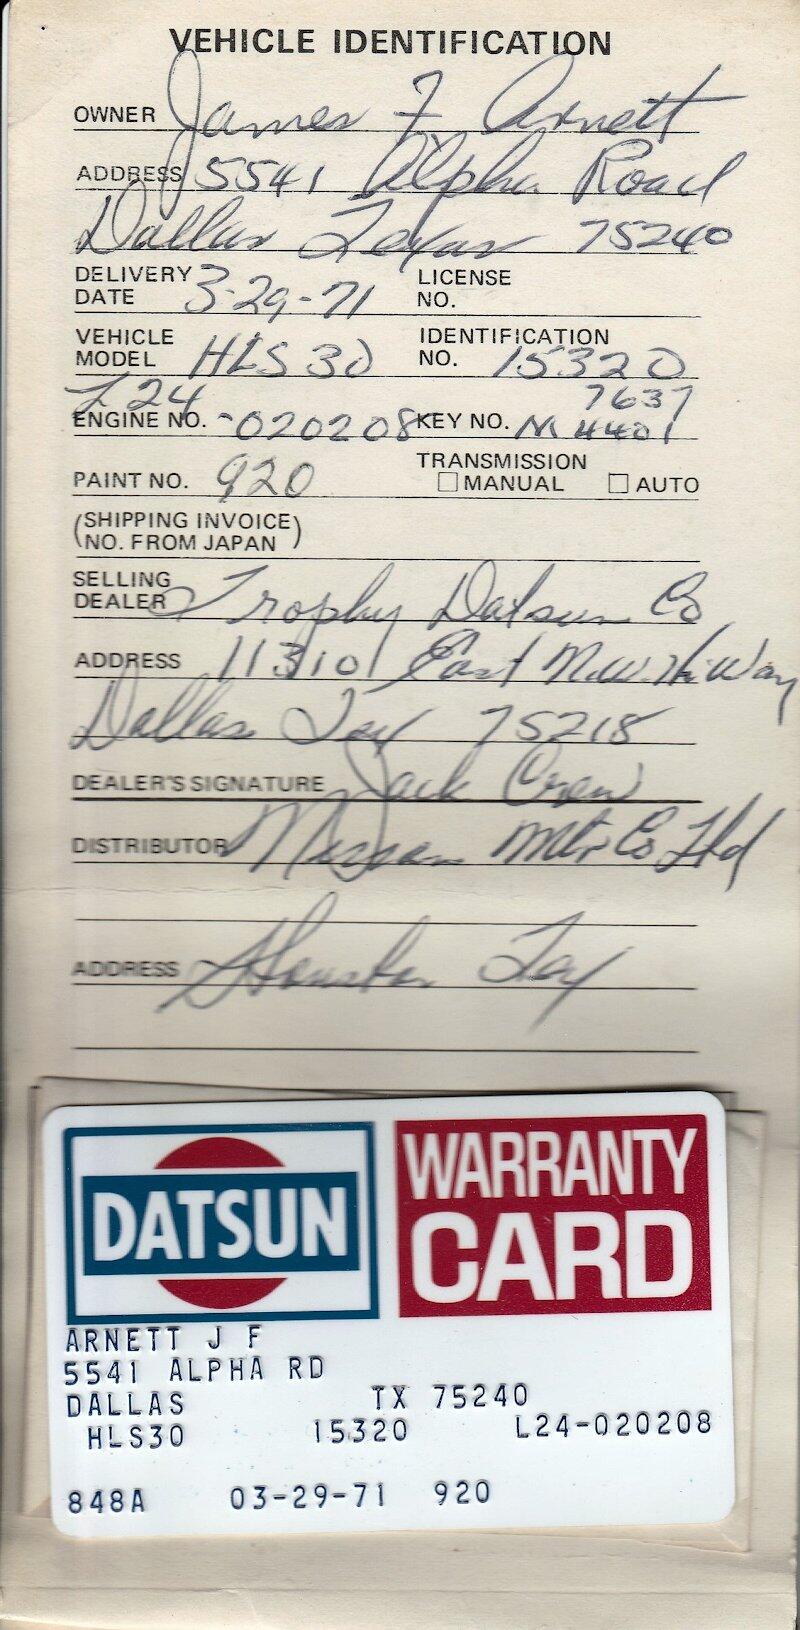 VEHICLE IDENTIFICATION
OWNER James F Arnett
ADDRESS 5541 Alpha Road
Dallas Texas 75240
DELIVERY DATE 3-29-71 LICENSE NO.
VEHICLE MODEL HLS 30 IDENTIFICATION NO. 15320
L24 7637
ENGINE NO. -020208 KEY NO. M 4401
PAINT NO. 920 TRANSMISSION
☐ MANUAL ☐ AUTO
(SHIPPING INVOICE
NO. FROM JAPAN)
SELLING DEALER Trophy Datsun Co
ADDRESS 11310 East N.W. HiWay
Dallas Tex 75218
DEALER'S SIGNATURE Jack Crew
DISTRIBUTOR Nissan Mtr Co Ltd
ADDRESS Houston Tex
DATSUN
WARRANTY
CARD
ARNETT J F
5541 ALPHA RD
DALLAS TX 75240
HLS30 15320 L24-020208
848A 03-29-71 920